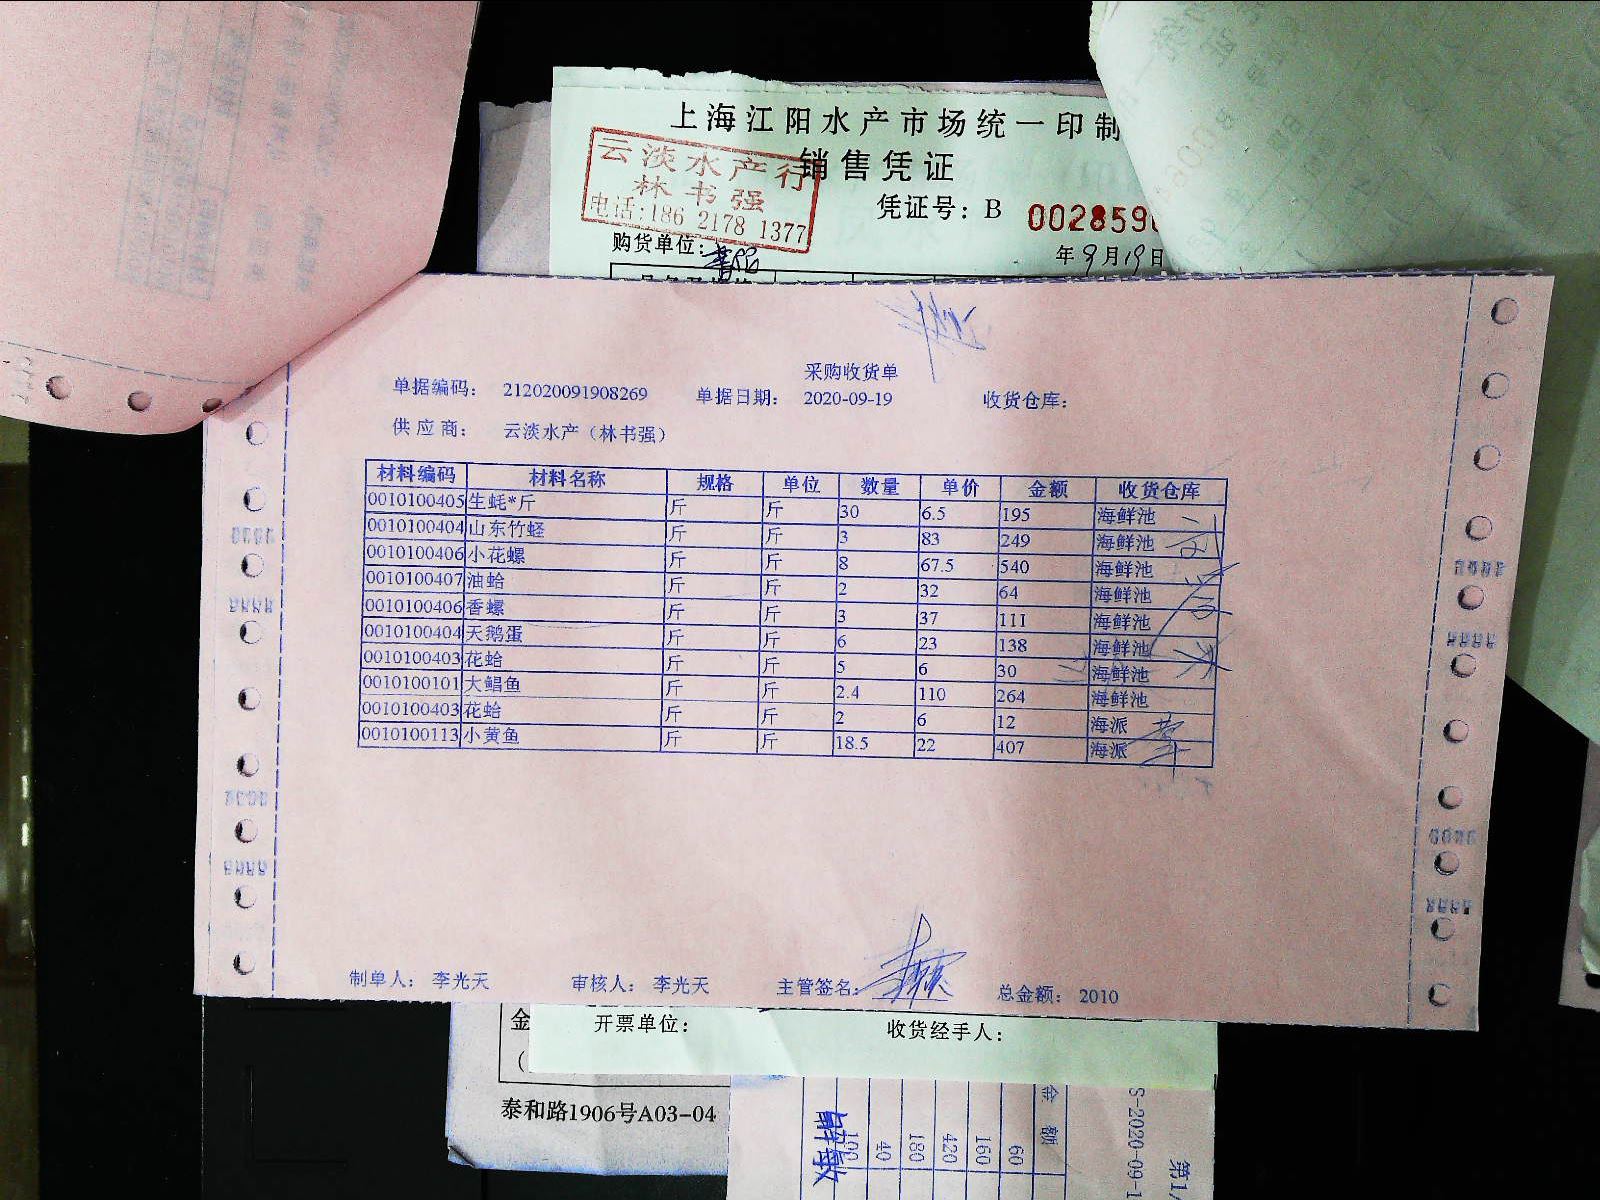 上海江阳水产市场统一印制
销售凭证
云淡水产行
林书强
电话:186 2178 1377
凭证号: B 0028590
购货单位:
年9月19日
采购收货单
单据编码: 212020091908269 单据日期: 2020-09-19 收货仓库:
供应商: 云淡水产（林书强）
材料编码 材料名称 规格 单位 数量 单价 金额 收货仓库
0010100405 生蚝*斤 斤 斤 30 6.5 195 海鲜池
0010100404 山东竹蛏 斤 斤 3 83 249 海鲜池
0010100406 小花螺 斤 斤 8 67.5 540 海鲜池
0010100407 油蛤 斤 斤 2 32 64 海鲜池
0010100406 香螺 斤 斤 3 37 111 海鲜池
0010100404 天鹅蛋 斤 斤 6 23 138 海鲜池
0010100403 花蛤 斤 斤 5 6 30 海鲜池
0010100101 大鲳鱼 斤 斤 2.4 110 264 海鲜池
0010100403 花蛤 斤 斤 2 6 12 海派
0010100113 小黄鱼 斤 斤 18.5 22 407 海派
制单人: 李光天 审核人: 李光天 主管签名: 总金额: 2010
金 开票单位: 收货经手人:
泰和路1906号A03-04
金额
60
160
420
180
40
100
S-2020-09-1
第1/